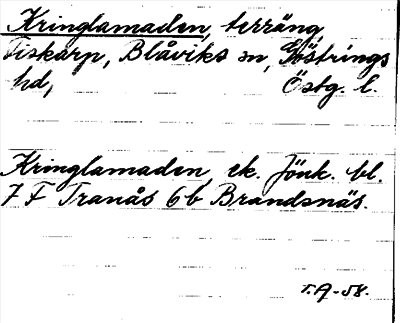 Kringlamaden, terräng,
Fiskarp, Blåviks sn, Göstrings
hd, Östg. l.
Kringlamaden, ek. Jönk. bl.
7 F Tranås 6 b Brandsnäs.
T.A-58.